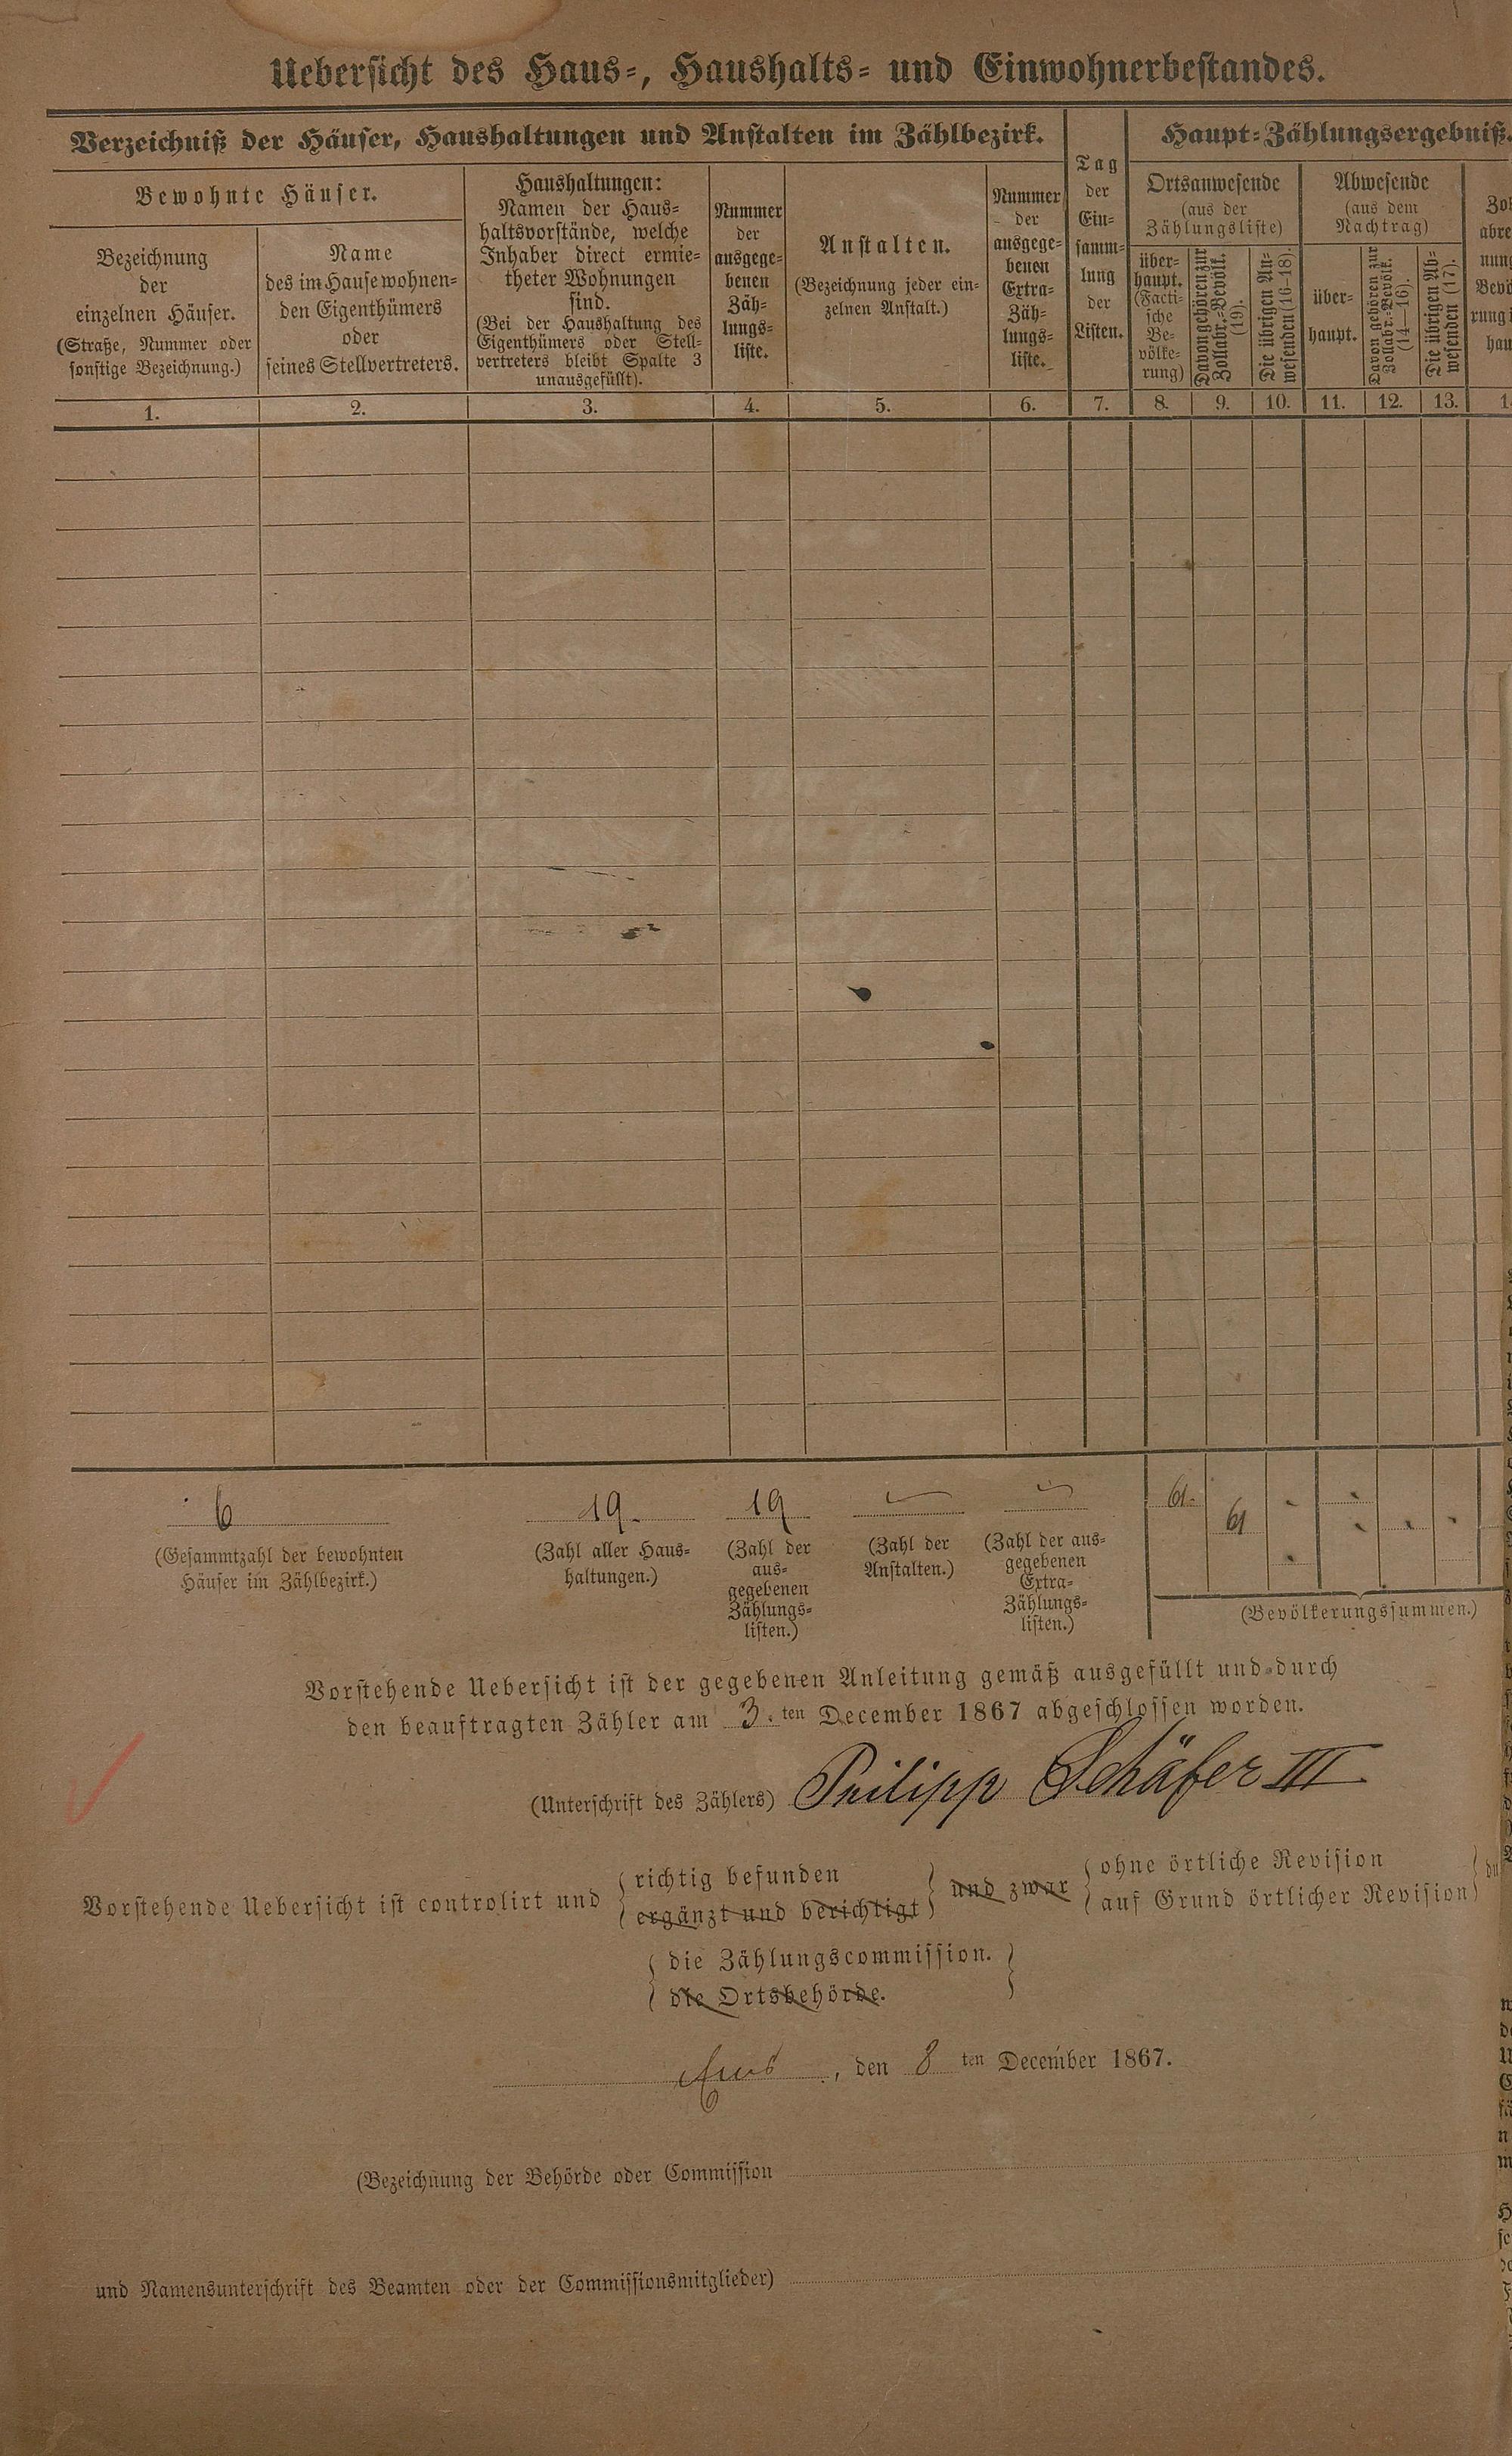 Uebersicht des Haus-, Haushalts- und Einwohnerbestandes.
Verzeichniß der Häuser, Haushaltungen und Anstalten im Zählbezirk.
Bewohnte Häuser.
Bezeichnung
der
einzelnen Häuser.
(Straße, Nummer oder
sonstige Bezeichnung.)
Name
des im Hause wohnen-
den Eigenthümers
oder
seines Stellvertreters.
Haushaltungen:
Namen der Haus-
haltsvorstände, welche
Inhaber direct ermie-
theter Wohnungen
sind.
(Bei der Haushaltung des
Eigenthümers oder Stell-
vertreters bleibt Spalte 3
unausgefüllt).
Nummer
der
ausgege-
benen
Zäh-
lungs-
liste.
Anstalten.
(Bezeichnung jeder ein-
zelnen Anstalt.)
Nummer
der
ausgege-
benen
Extra-
Zäh-
lungs-
liste.
Tag
der
Ein-
samm-
lung
der
Listen.
Haupt-Zählungsergebniß.
Ortsanwesende
(aus der
Zählungsliste)
über-
haupt.
(Facti-
sche
Be-
völke-
rung)
Davon gehören zur
Zollabr.-Bevölk.
(19).
Die übrigen An-
wesenden (16-18).
Abwesende
(aus dem
Nachtrag)
über-
haupt.
Davon gehören zur
Zollabr.-Bevölk.
(14—16).
Die übrigen Ab-
wesenden (17).
1. 2. 3. 4. 5. 6. 7. 8. 9. 10. 11. 12. 13.
6 19. 19 61.
61
(Gesammtzahl der bewohnten
Häuser im Zählbezirk.)
(Zahl aller Haus-
haltungen.)
(Zahl der
aus-
gegebenen
Zählungs-
listen.)
(Zahl der
Anstalten.)
(Zahl der aus-
gegebenen
Extra-
Zählungs-
listen.)
(Bevölkerungssummen.)
Vorstehende Uebersicht ist der gegebenen Anleitung gemäß ausgefüllt und durch
den beauftragten Zähler am 3. ten December 1867 abgeschlossen worden.
(Unterschrift des Zählers) Philipp Schäfer III
Vorstehende Uebersicht ist controlirt und
richtig befunden
ergänzt und berichtigt
und zwar
ohne örtliche Revision
auf Grund örtlicher Revision
die Zählungscommission.
die Ortsbehörde.
Ems, den 8 ten December 1867.
(Bezeichnung der Behörde oder Commission
und Namensunterschrift des Beamten oder der Commissionsmitglieder)